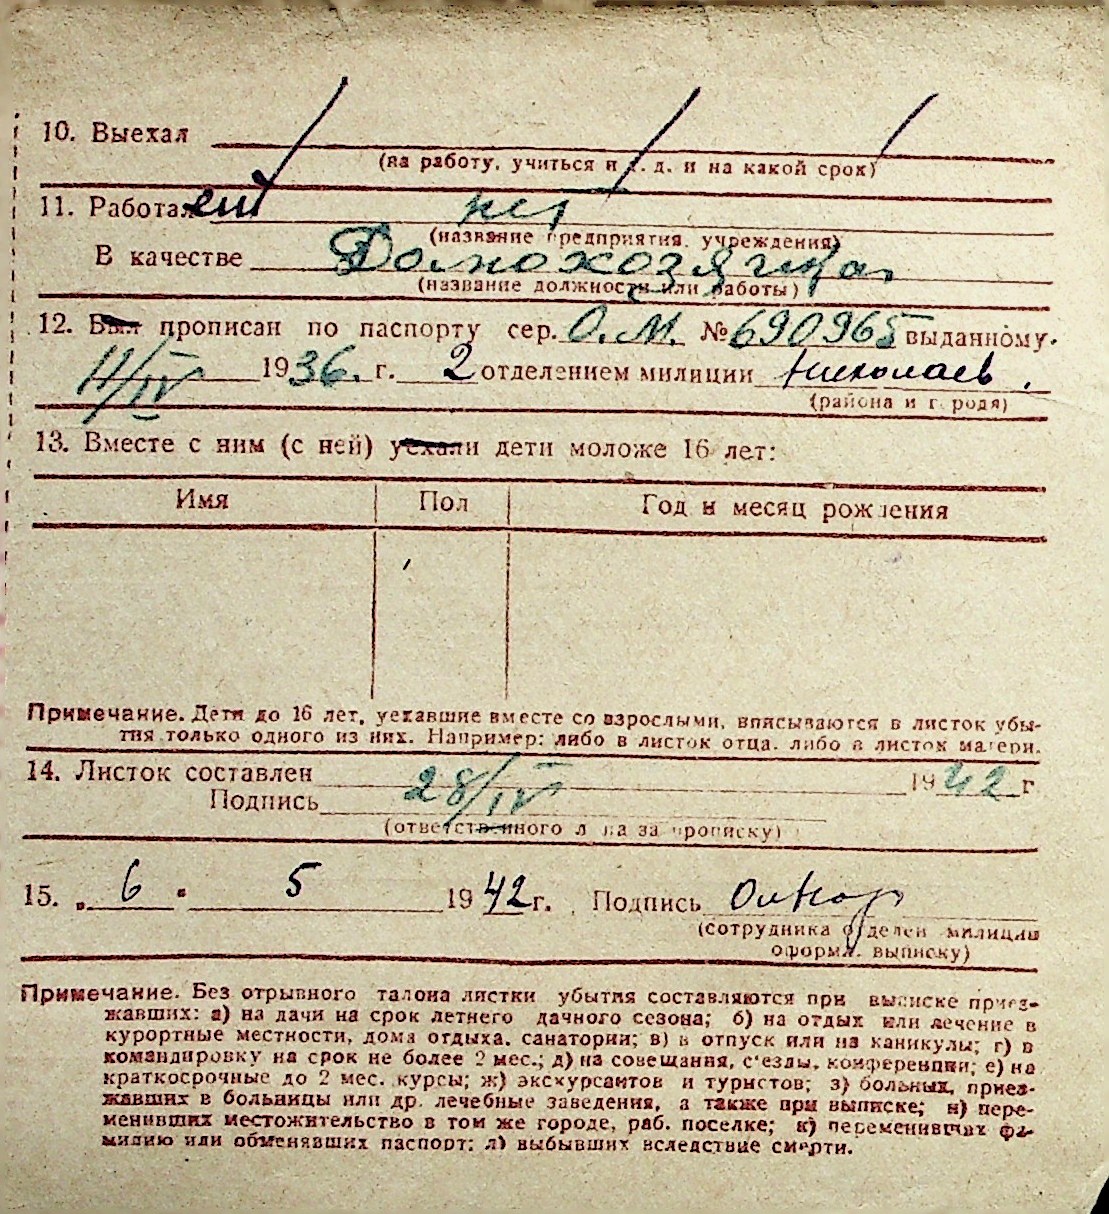 10. Выехал
(на работу, учиться и т. д. и на какой срок)
11. Работает нет
(название предприятия, учреждения)
В качестве Домохозяйка
(название должности или работы)
12. Был прописан по паспорту сер. О.М. № 690965 выданному
11/IV 1936. г. 2 отделением милиции Николаев.
(района и города)
13. Вместе с ним (с ней) уехали дети моложе 16 лет:
Имя Пол Год и месяц рождения
Примечание. Дети до 16 лет, уехавшие вместе со взрослыми, вписываются в листок убы-
тия только одного из них. Например: либо в листок отца, либо в листок матери.
14. Листок составлен 28/IV 1942 г
Подпись
(ответственного лица за прописку)
15. „ 6 " 5 1942 г. Подпись
(сотрудника отделен милиции
оформ. выписку)
Примечание. Без отрывного талона листки убытия составляются при выписке приез-
жавших: а) на дачи на срок летнего дачного сезона; б) на отдых или лечение в
курортные местности, дома отдыха, санатории; в) в отпуск или на каникулы; г) в
командировку на срок не более 2 мес.; д) на совещания, с'езды, конференции; е) на
краткосрочные до 2 мес. курсы; ж) экскурсантов и туристов; з) больных, приез-
жавших в больницы или др. лечебные заведения, а также при выписке; и) пере-
менивших местожительство в том же городе, раб. поселке; к) переменивших фа-
милию или обменявших паспорт; л) выбывших вследствие смерти.